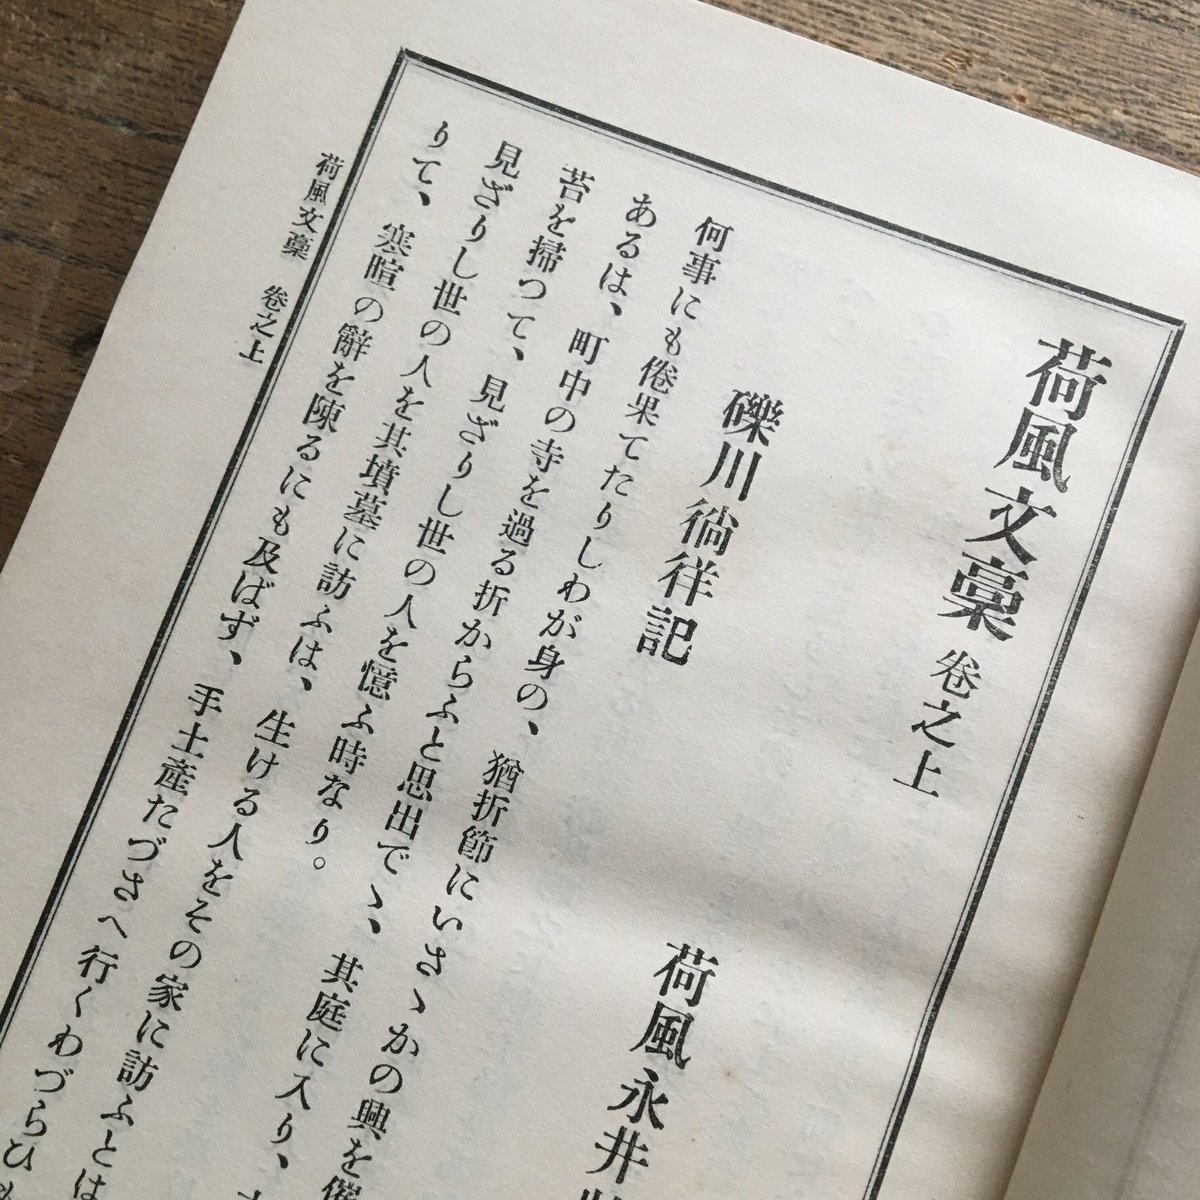 荷風文稾 卷之上
礫川徜徉記
荷風永井
何事にも倦果てたりしわが身の、猶折節にいさゝかの興を催
あるは、町中の寺を過る折からふと思出でゝ、其庭に入り、
苔を掃つて、見ざりし世の人を憶ふ時なり。
見ざりし世の人を其墳墓に訪ふは、生ける人をその家に訪ふとは
りて、寒暄の辭を陳るにも及ばず、手土産たづさへ行くわづらひも
荷風文稾 卷之上